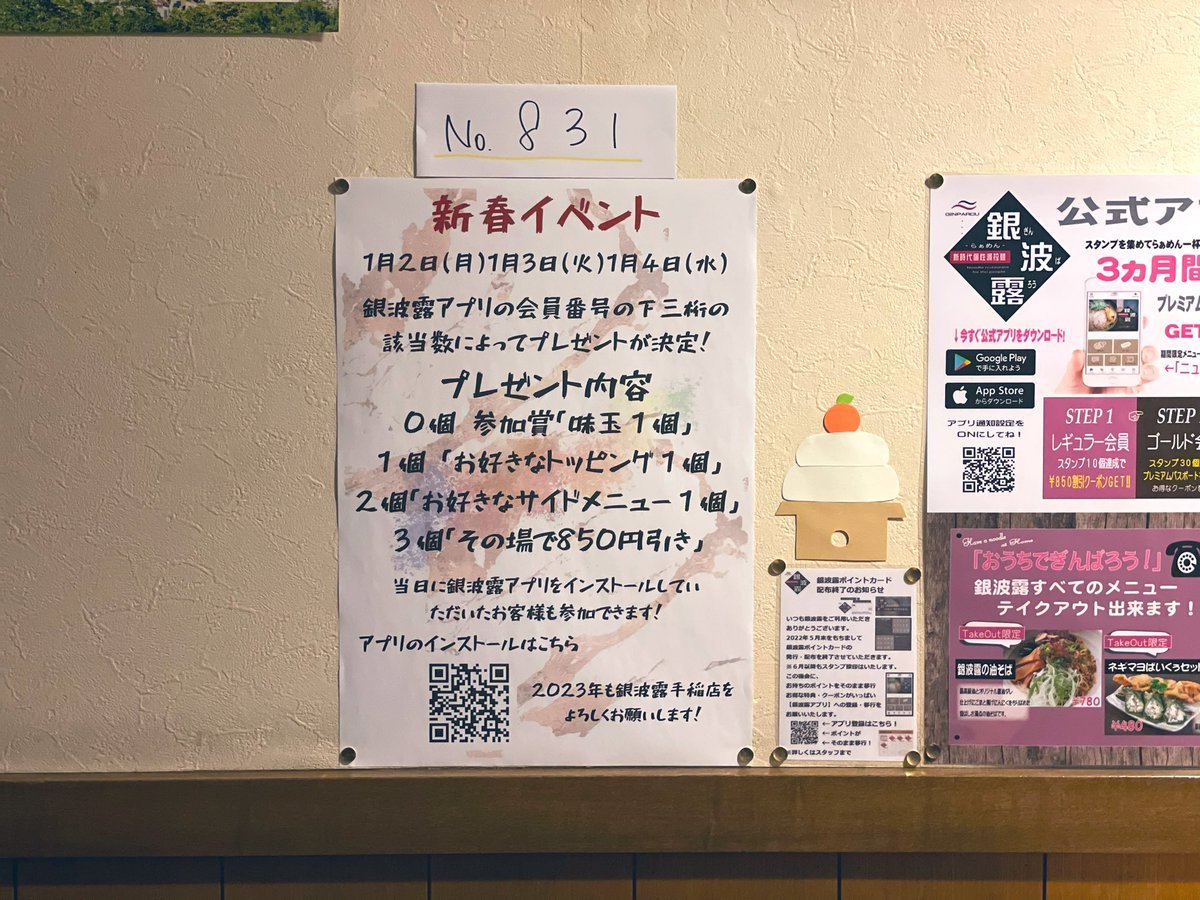 No. 831
新春イベント
1月2日(月)1月3日(火)1月4日(水)
銀波露アプリの会員番号の下三桁の
該当数によってプレゼントが決定!
プレゼント内容
0個 参加賞「味玉1個」
1個「お好きなトッピング1個」
2個「お好きなサイドメニュー1個」
3個「その場で850円引き」
当日に銀波露アプリをインストールしてい
ただいたお客様も参加できます!
アプリのインストールはこちら
2023年も銀波露手稲店を
よろしくお願いします!
銀波露ポイントカード
配布終了のお知らせ
いつも銀波露をご利用いただき
ありがとうございます。
2022年5月末をもちまして
銀波露ポイントカードの
発行・配布を終了させていただきます。
※6月以降もスタンプ押印はいたします。
この機会に、
お持ちのポイントをそのまま移行
お得な特典・クーポンがいっぱい
【銀波露アプリ】への登録・移行を
お願いいたします。
←アプリ登録はこちら!
←ポイントが
そのまま移行!
※詳しくはスタッフまで
GINPAROU
銀 ぎん
らぁめん
新時代個性派拉麺
波 ぱ
露 ろう
公式ア
スタンプを集めてらぁめん一杯
3ヵ月間
プレミアム
GET
期間限定メニュー
←「ニュ
↓今すぐ公式アプリをダウンロード!
Google Play
で手に入れよう
App Store
からダウンロード
アプリ通知設定を
ONにしてね!
STEP 1
レギュラー会員
スタンプ10個達成で
¥850割引クーポンGET!!
STEP
ゴールド会
スタンプ30個
プレミアムパスポート
お得なクーポン
Have a noodle
at Home
「おうちでぎんぱろう!」
銀波露すべてのメニュー
テイクアウト出来ます!
TakeOut限定
銀波露の油そば
¥780
TakeOut限定
ネギマヨぱいくぅセット
¥480